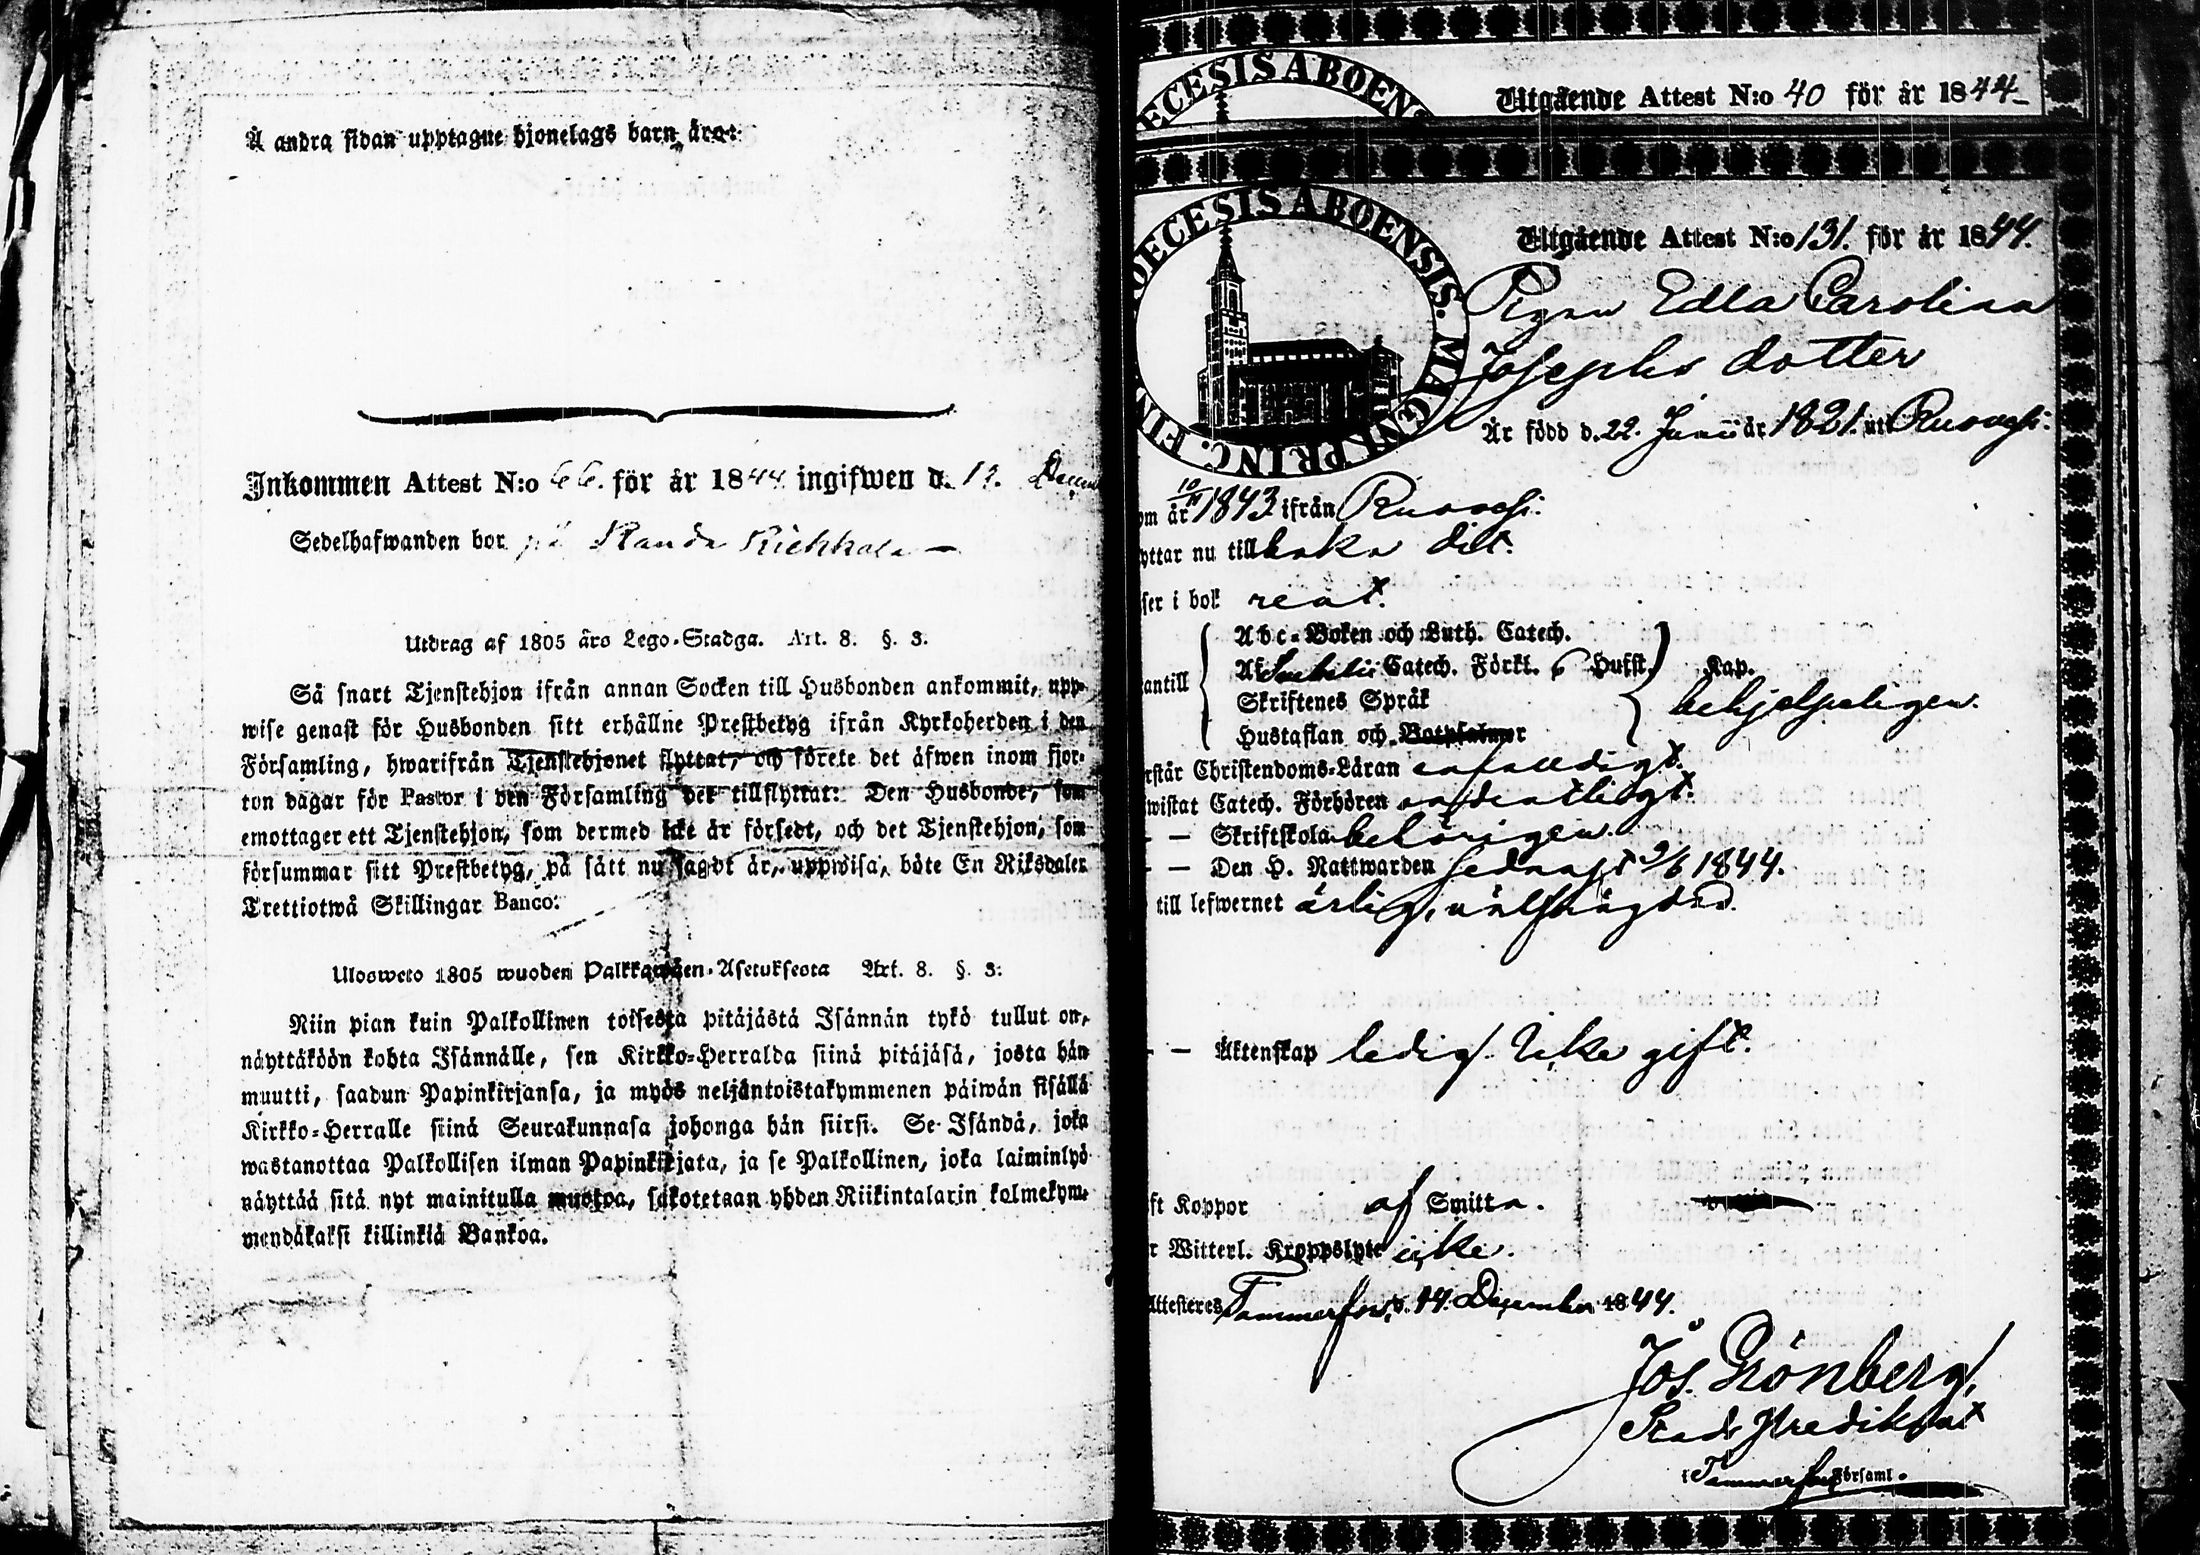 Å andra sidan upptagne hjonelags barn äro:
Inkommen Attest N:o 66. för år 1844 ingifwen d. 19.
Sedelhafwanden bor på
Utdrag af 1805 års Lego-Stadga. Art. 8. §. 3.
Så snart Tjenstehjon ifrån annan Socken till Husbonden ankommit, upp-
wise genast för Husbonden sitt erhållne Prestbetyg ifrån Kyrkoherden i den
Församling, hwarifrån Tjenstehjonet flyttat, och förete det äfwen inom fjor-
ton dagar för Pastor i den Församling det tillflyttat: Den Husbonde, som
emottager ett Tjenstehjon, som dermed icke är försedt, och det Tjenstehjon, som
försummar sitt Prestbetyg, på sätt nu sagdt är, uppwisa, böte En Riksdaler
Trettiotwå Skillingar Banco.
Ulosweto 1805 wuoden Palkkawäen-Asetuksesta Art. 8. §. 3.
Niin pian kuin Palkollinen toisesta pitäjästä Isännän tykö tullut on,
näyttäköön kohta Isännälle, sen Kirkko-Herralda siinä pitäjäsä, josta hän
muutti, saadun Papinkirjansa, ja myös neljäntoistakymmenen päiwän sisällä
Kirkko-Herralle siinä Seurakunnasa johonga hän siirsi. Se Isändä, joka
wastanottaa Palkollisen ilman Papinkirjata, ja se Palkollinen, joka laiminlyö
näyttää sitä nyt mainitulla muotoa, sakotetaan yhden Riikintalarin kolmekym-
mendäkaksi killinkiä Bankoa.
ECESIS ABOENS
Utgående Attest N:o 40 för år 1844
DECESIS ABOENSIS. MAGNI PRINC. FIN
Utgående Attest N:o 131. för år 1844.
Pigan Edla Carolina
Josephs dotter
Är född d. 22. Janu är 1821. uti Ruovesi.
om år 10/11 1843 ifrån Ruovesi.
yttar nu tillbaka dit.
ser i bok rent.
Abc-Boken och Luth. Catech.
Af Svebelii Catech. Förkl. 6 Hufst. Kap.
antill
Skriftenes Språk
behjelpeligen.
Hustaflan och Botpsalmer
rstår Christendoms-Läran enfaldigt.
wistat Catech. Förhören ordentligt.
— Skriftskola behörigen.
— Den H. Nattwarden sednast 9/6 1844.
till lefwernet ärlig, välfrägdad.
— Äktenskap ledig. Icke gift.
ft Koppor af Smitta.
r Witterl. Kroppslyte icke.
Attesteres Tammerfors, d. 14. December 1844.
Jos. Grönberg,
Stads Predikant
i Tammerfors Församl.